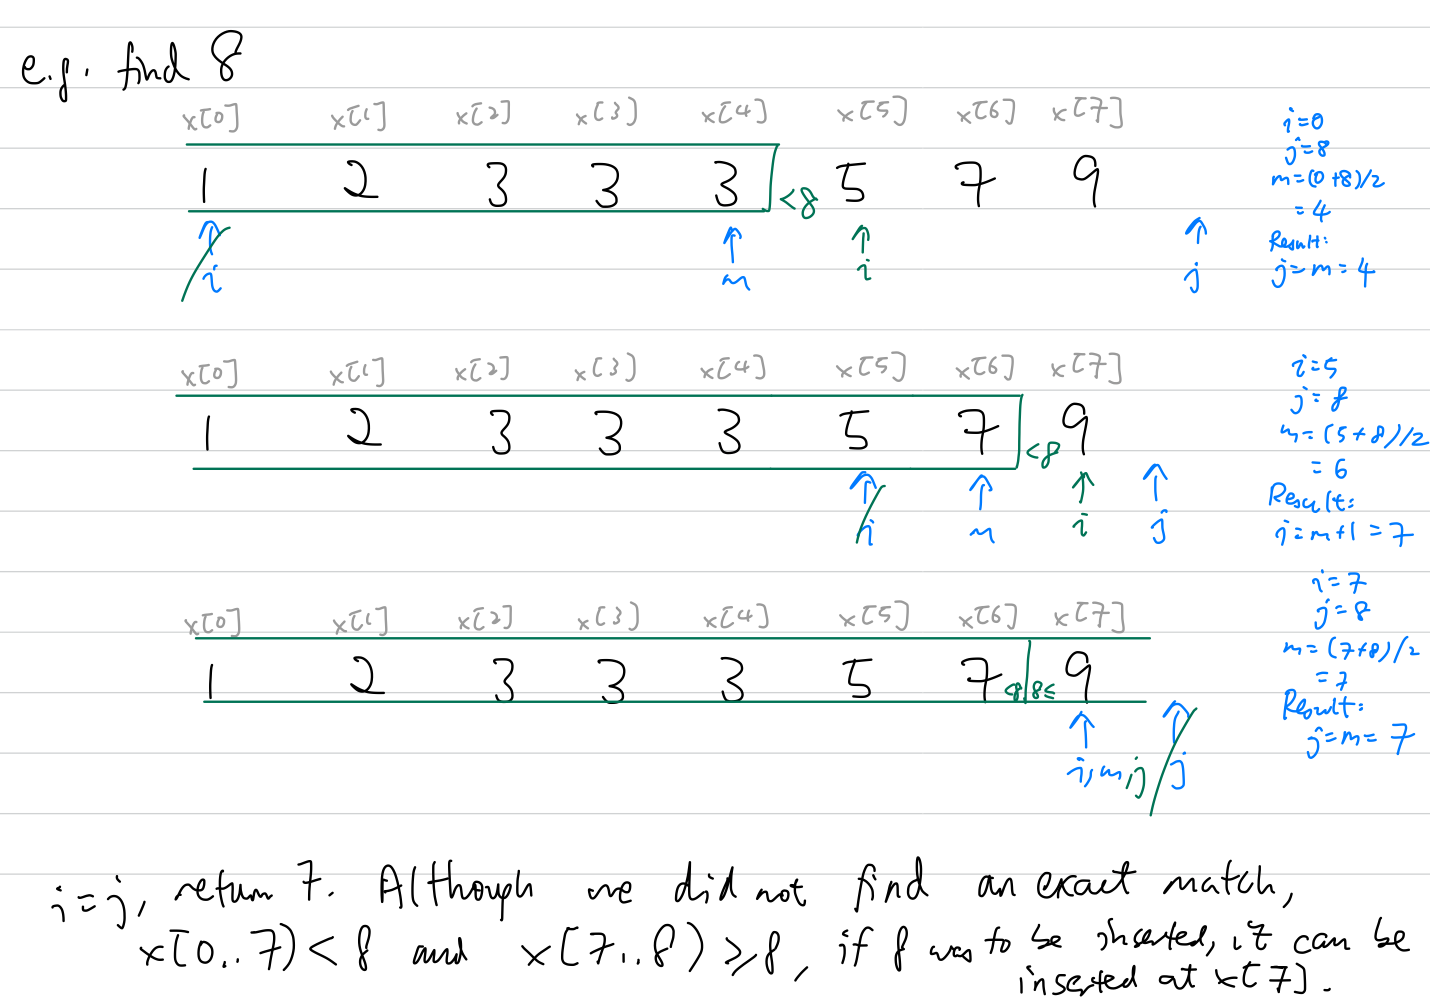 e.g. find 8
x[0] x[1] x[2] x[3] x[4] x[5] x[6] x[7]
1 2 3 3 3 <8 5 7 9
i m i j
i=0
j=8
m=(0+8)/2
=4
Result:
j=m=4
x[0] x[1] x[2] x[3] x[4] x[5] x[6] x[7]
1 2 3 3 3 5 7 <8 9
i m i j
i=5
j=8
m=(5+8)/2
=6
Result:
i=m+1=7
x[0] x[1] x[2] x[3] x[4] x[5] x[6] x[7]
1 2 3 3 3 5 7 <8 8≤ 9
i,m,j j
i=7
j=8
m=(7+8)/2
=7
Result:
j=m=7
i=j, return 7. Although we did not find an exact match,
x[0..7)<8 and x[7..8)≥8, if 8 was to be inserted, it can be
inserted at x[7].